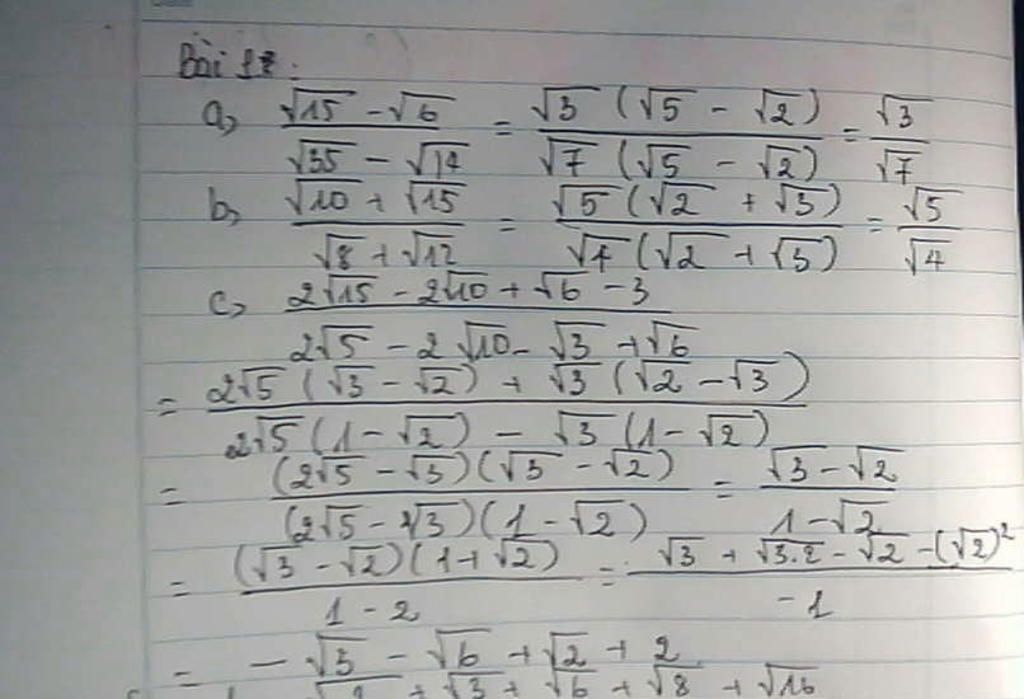 Bài 1:
a, (√15 - √6) / (√35 - √14) = √3 (√5 - √2) / √7 (√5 - √2) = √3 / √7
b, (√10 + √15) / (√8 + √12) = √5 (√2 + √3) / √4 (√2 + √3) = √5 / √4
c, (2√15 - 2√10 + √6 - 3) / (2√5 - 2√10 - √3 + √6)
= (2√5 (√3 - √2) + √3 (√2 - √3)) / (2√5 (1 - √2) - √3 (1 - √2))
= (2√5 - √3)(√3 - √2) / (2√5 - √3)(1 - √2) = (√3 - √2) / (1 - √2)
= (√3 - √2)(1 + √2) / (1 - 2) = (√3 + √3.2 - √2 - (√2)²) / -1
= - √3 - √6 + √2 + 2
+ √3 + √6 + √8 + √16